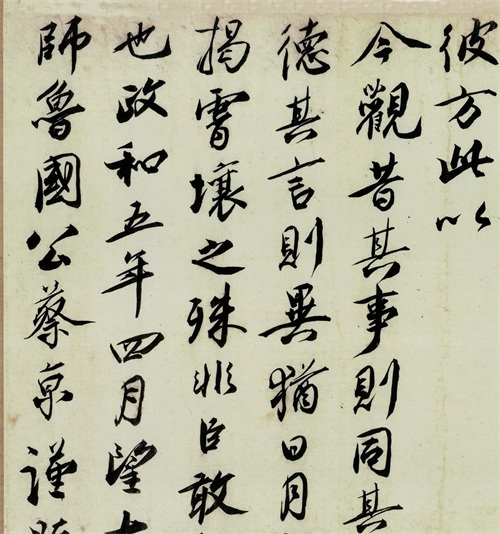 彼方此以
今觀昔其事則同其
德其言則異猶日月
揭霄壤之殊非臣敢
也政和五年四月望太
師魯國公蔡京謹